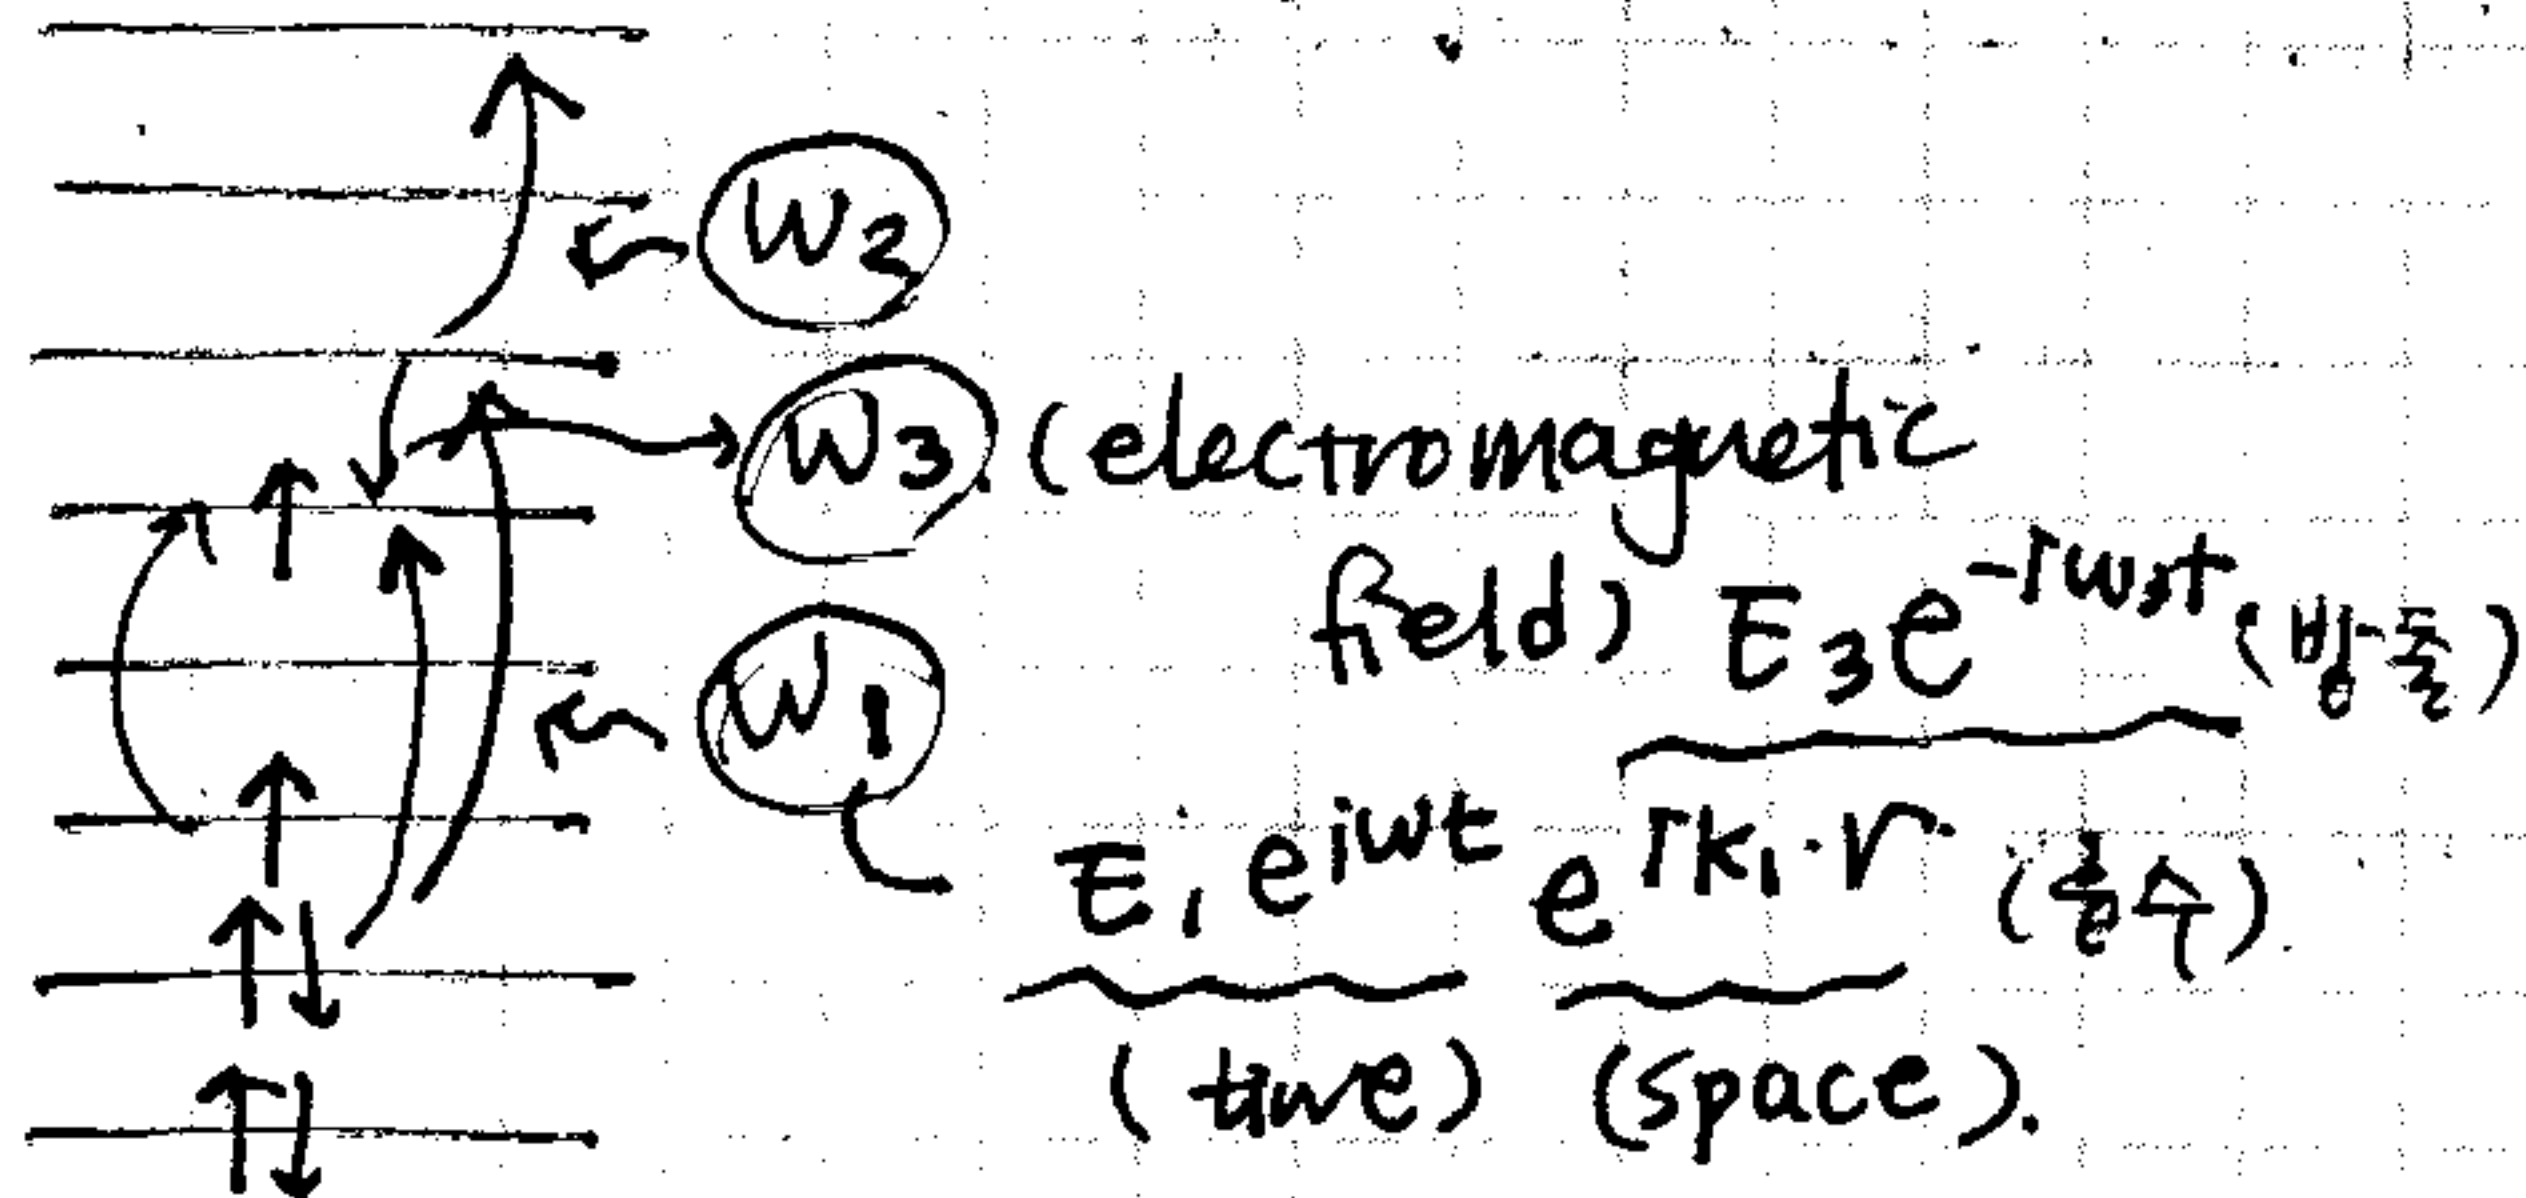 W2
W3 (electromagnetic
field) E3 e^-iw3t (방출)
W1
E1 e^iwt e^ik1·r (흡수).
(time) (space).